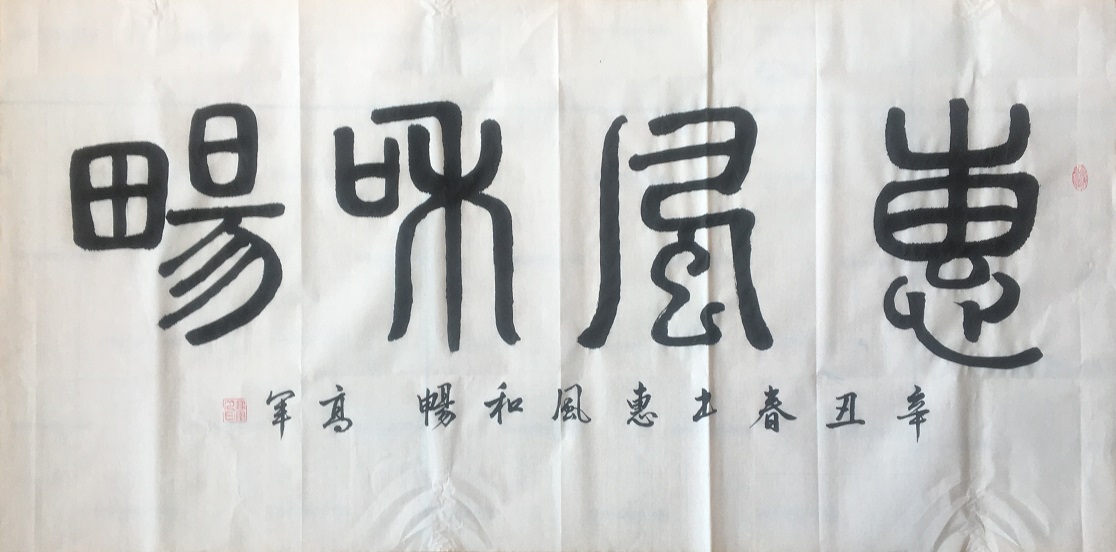 惠風和暢
辛丑春書惠風和暢 高軍